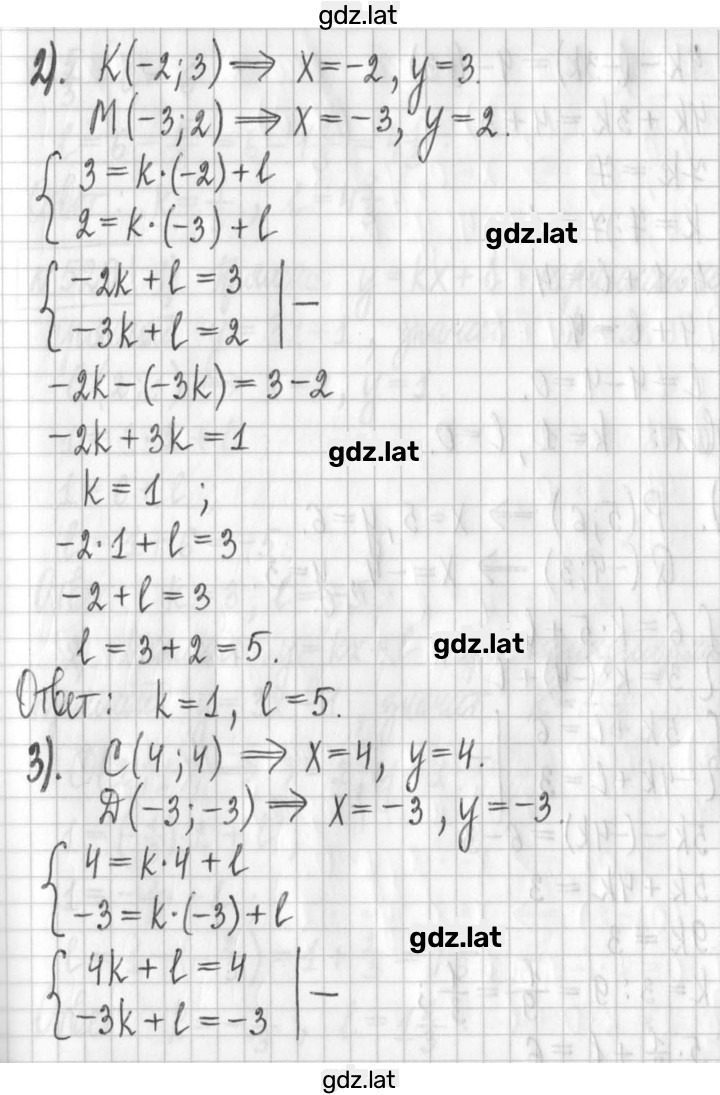 gdz.lat
2). K(-2;3) ⟹ x=-2, y=3.
M(-3;2) ⟹ x=-3, y=2.
{ 3=k·(-2)+l
2=k·(-3)+l
gdz.lat
{ -2k+l=3 | -
-3k+l=2
-2k-(-3k)=3-2
-2k+3k=1
gdz.lat
k=1 ;
-2·1+l=3
-2+l=3
l=3+2=5.
gdz.lat
Ответ: k=1, l=5.
3). C(4;4) ⟹ x=4, y=4.
D(-3;-3) ⟹ x=-3, y=-3.
{ 4=k·4+l
-3=k·(-3)+l
gdz.lat
{ 4k+l=4 | -
-3k+l=-3
gdz.lat